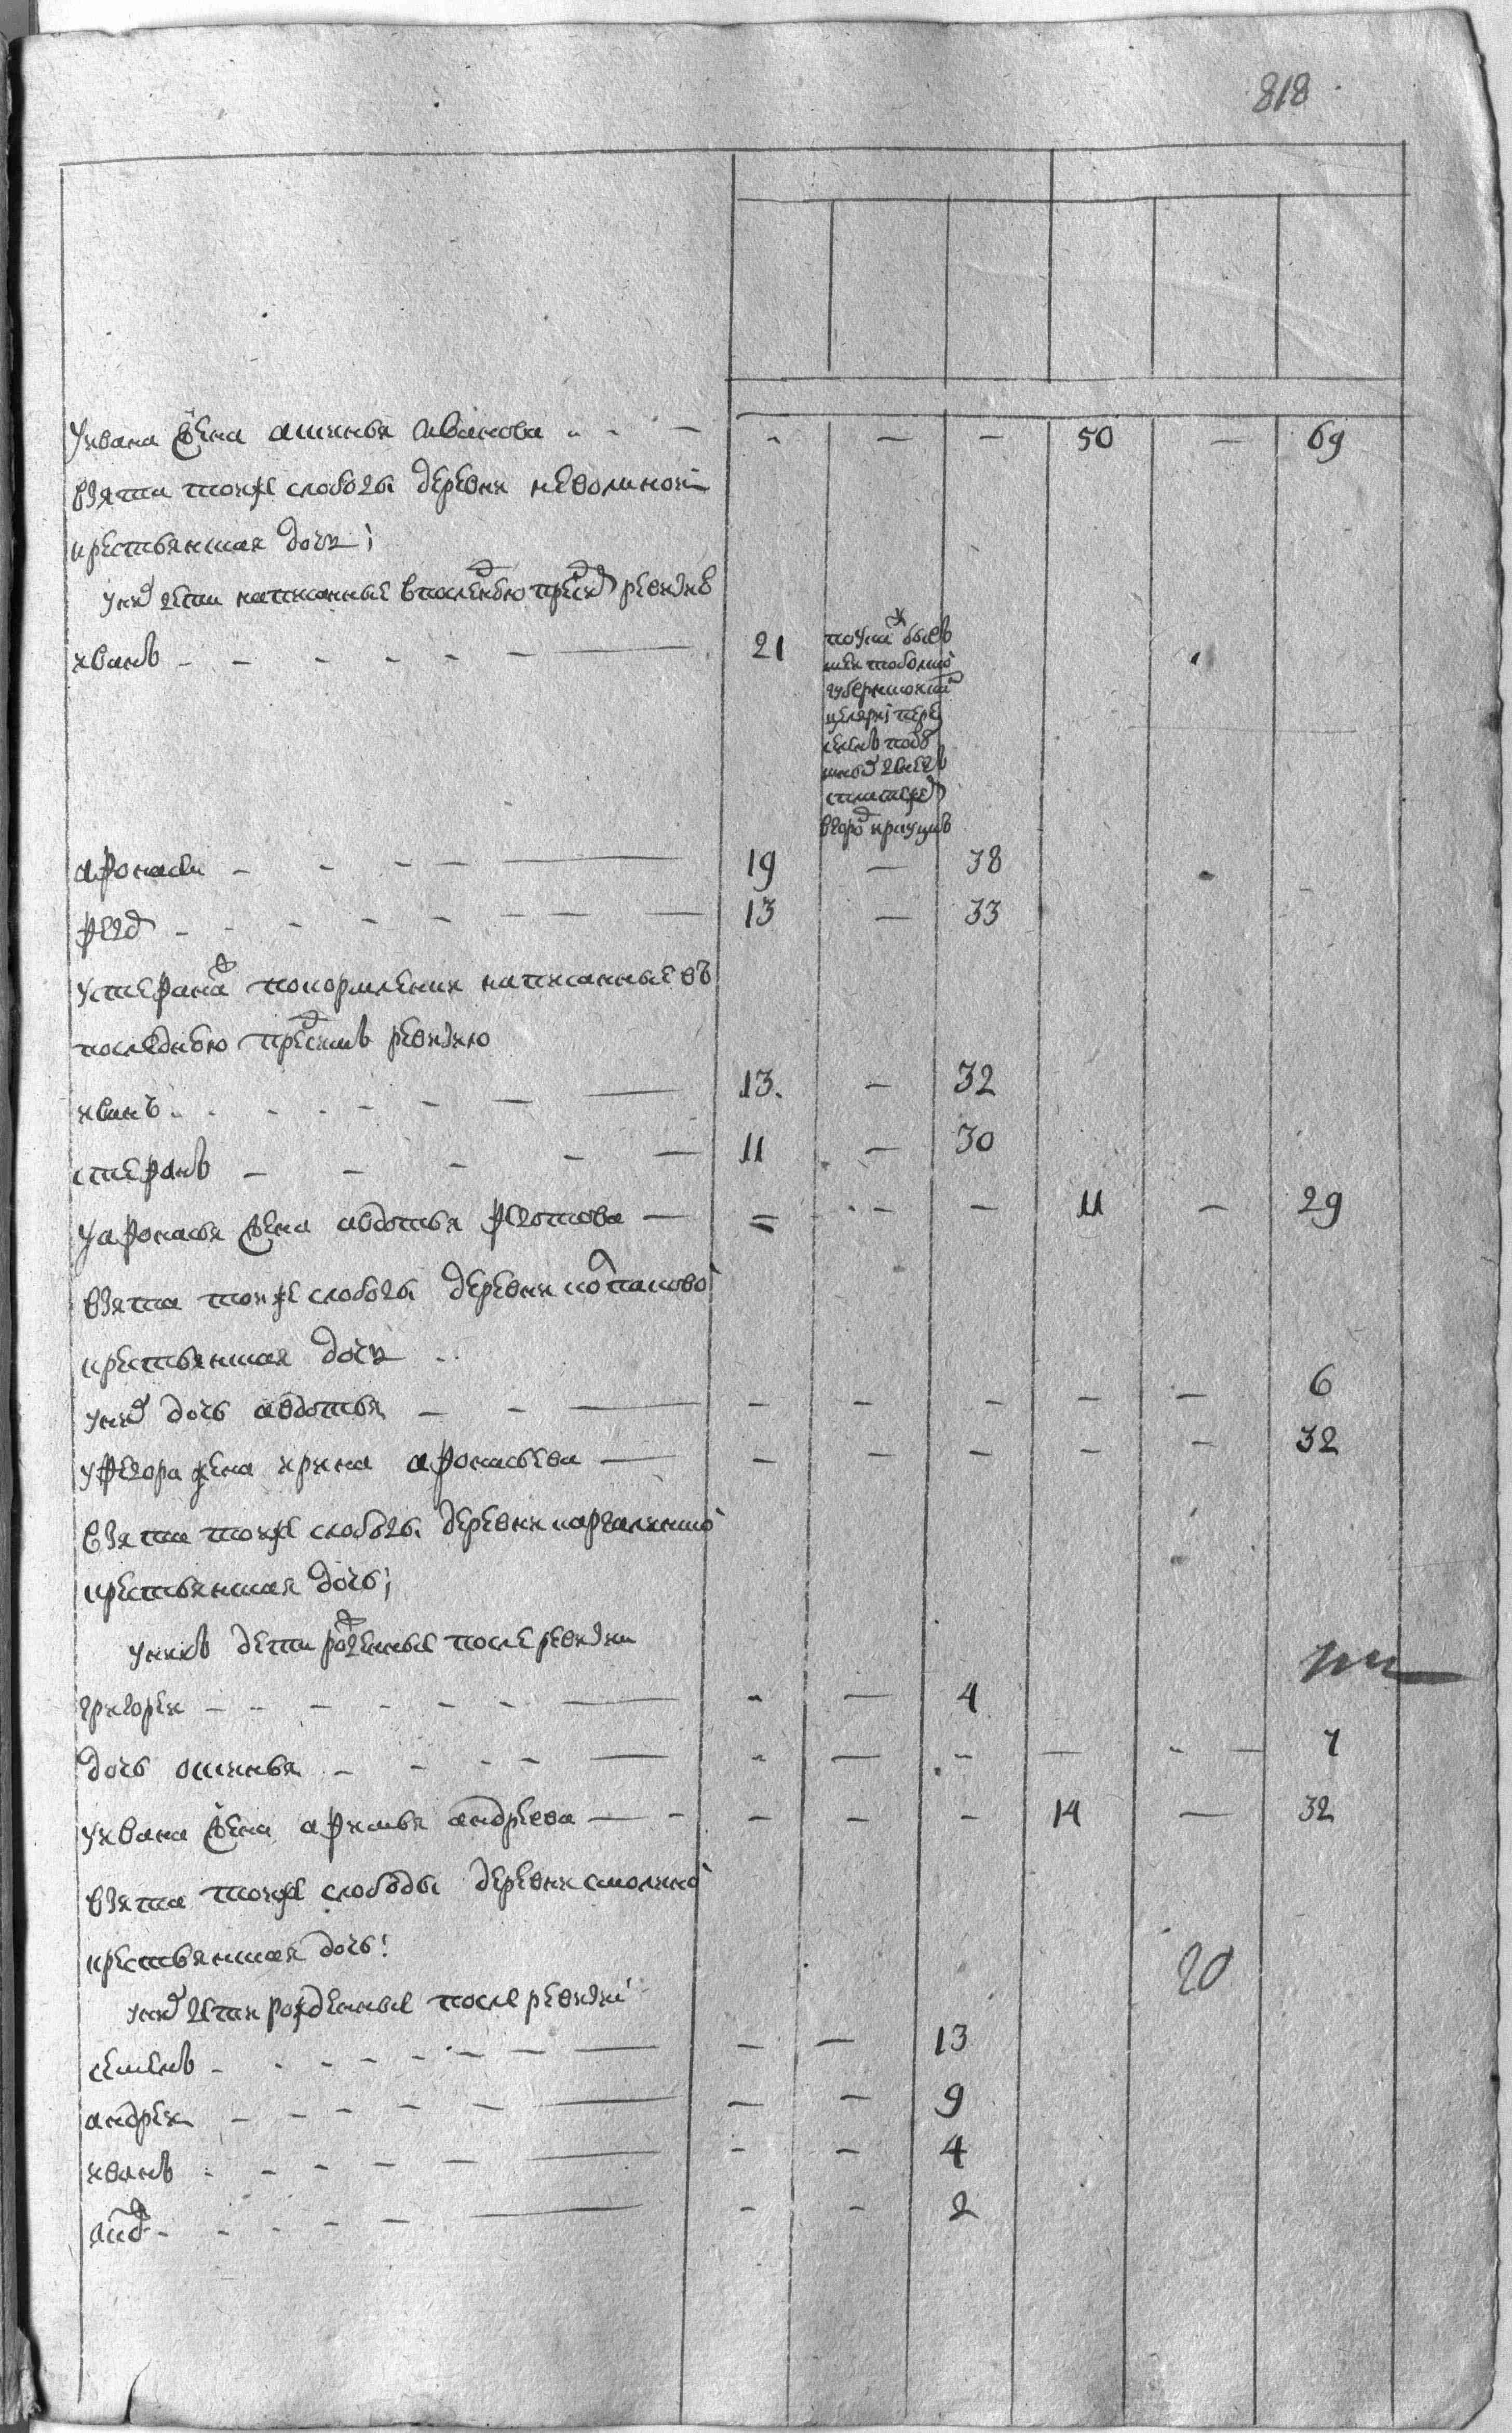 818
у ивана жена аксинья иванова - - - - - - 50 - 69
взята тоиже слободы деревни неволиной
крестьянская дочь;
у них дети написанные в последнюю пред сим ревизию
иванъ - - - - - - - 21 по указу бывшей тобольской губернской канцелярии
аѳонасеи - - - - - 19 - 38
ѳедор - - - - - - - - 13 - 33
у стеѳана покормленики написанные въ
последнюю пред симъ ревизию
иванъ - - - - - - - 13. - 32
стеѳанъ - - - - - 11 - 30
у аѳонасья жена авдотья ѳедотова - = - - 11 - 29
взята тоиже слободы деревни потаповой
крестьянская дочь
у них дочь авдотья - - - - - - - - 6
у ѳедора жена ирина аѳонасьева - - - - - - 32
взята тоиже слободы деревни
крестьянская дочь;
у нихъ дети рожденные после ревизии
григореи - - - - - - - - - 4
дочь аксинья - - - - - - - - - - - 7
у ивана жена аѳимья андреева - - - - - 14 - 32
взята тоиже слободы деревни смолиной
крестьянская дочь!
20
у них дети рожденные после ревизии
семенъ - - - - - - - - - - 13
андреи - - - - - - - - 9
иванъ - - - - - - - - 4
- - - - - - - - 2